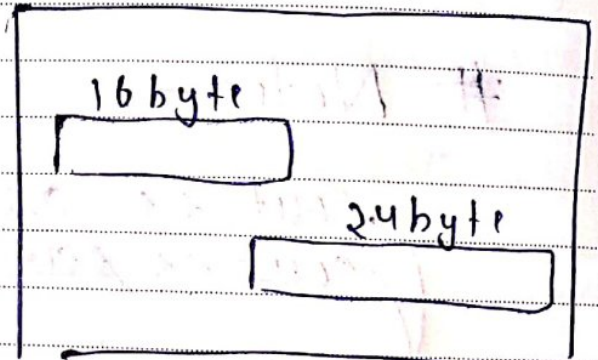 16 byte
24 byte